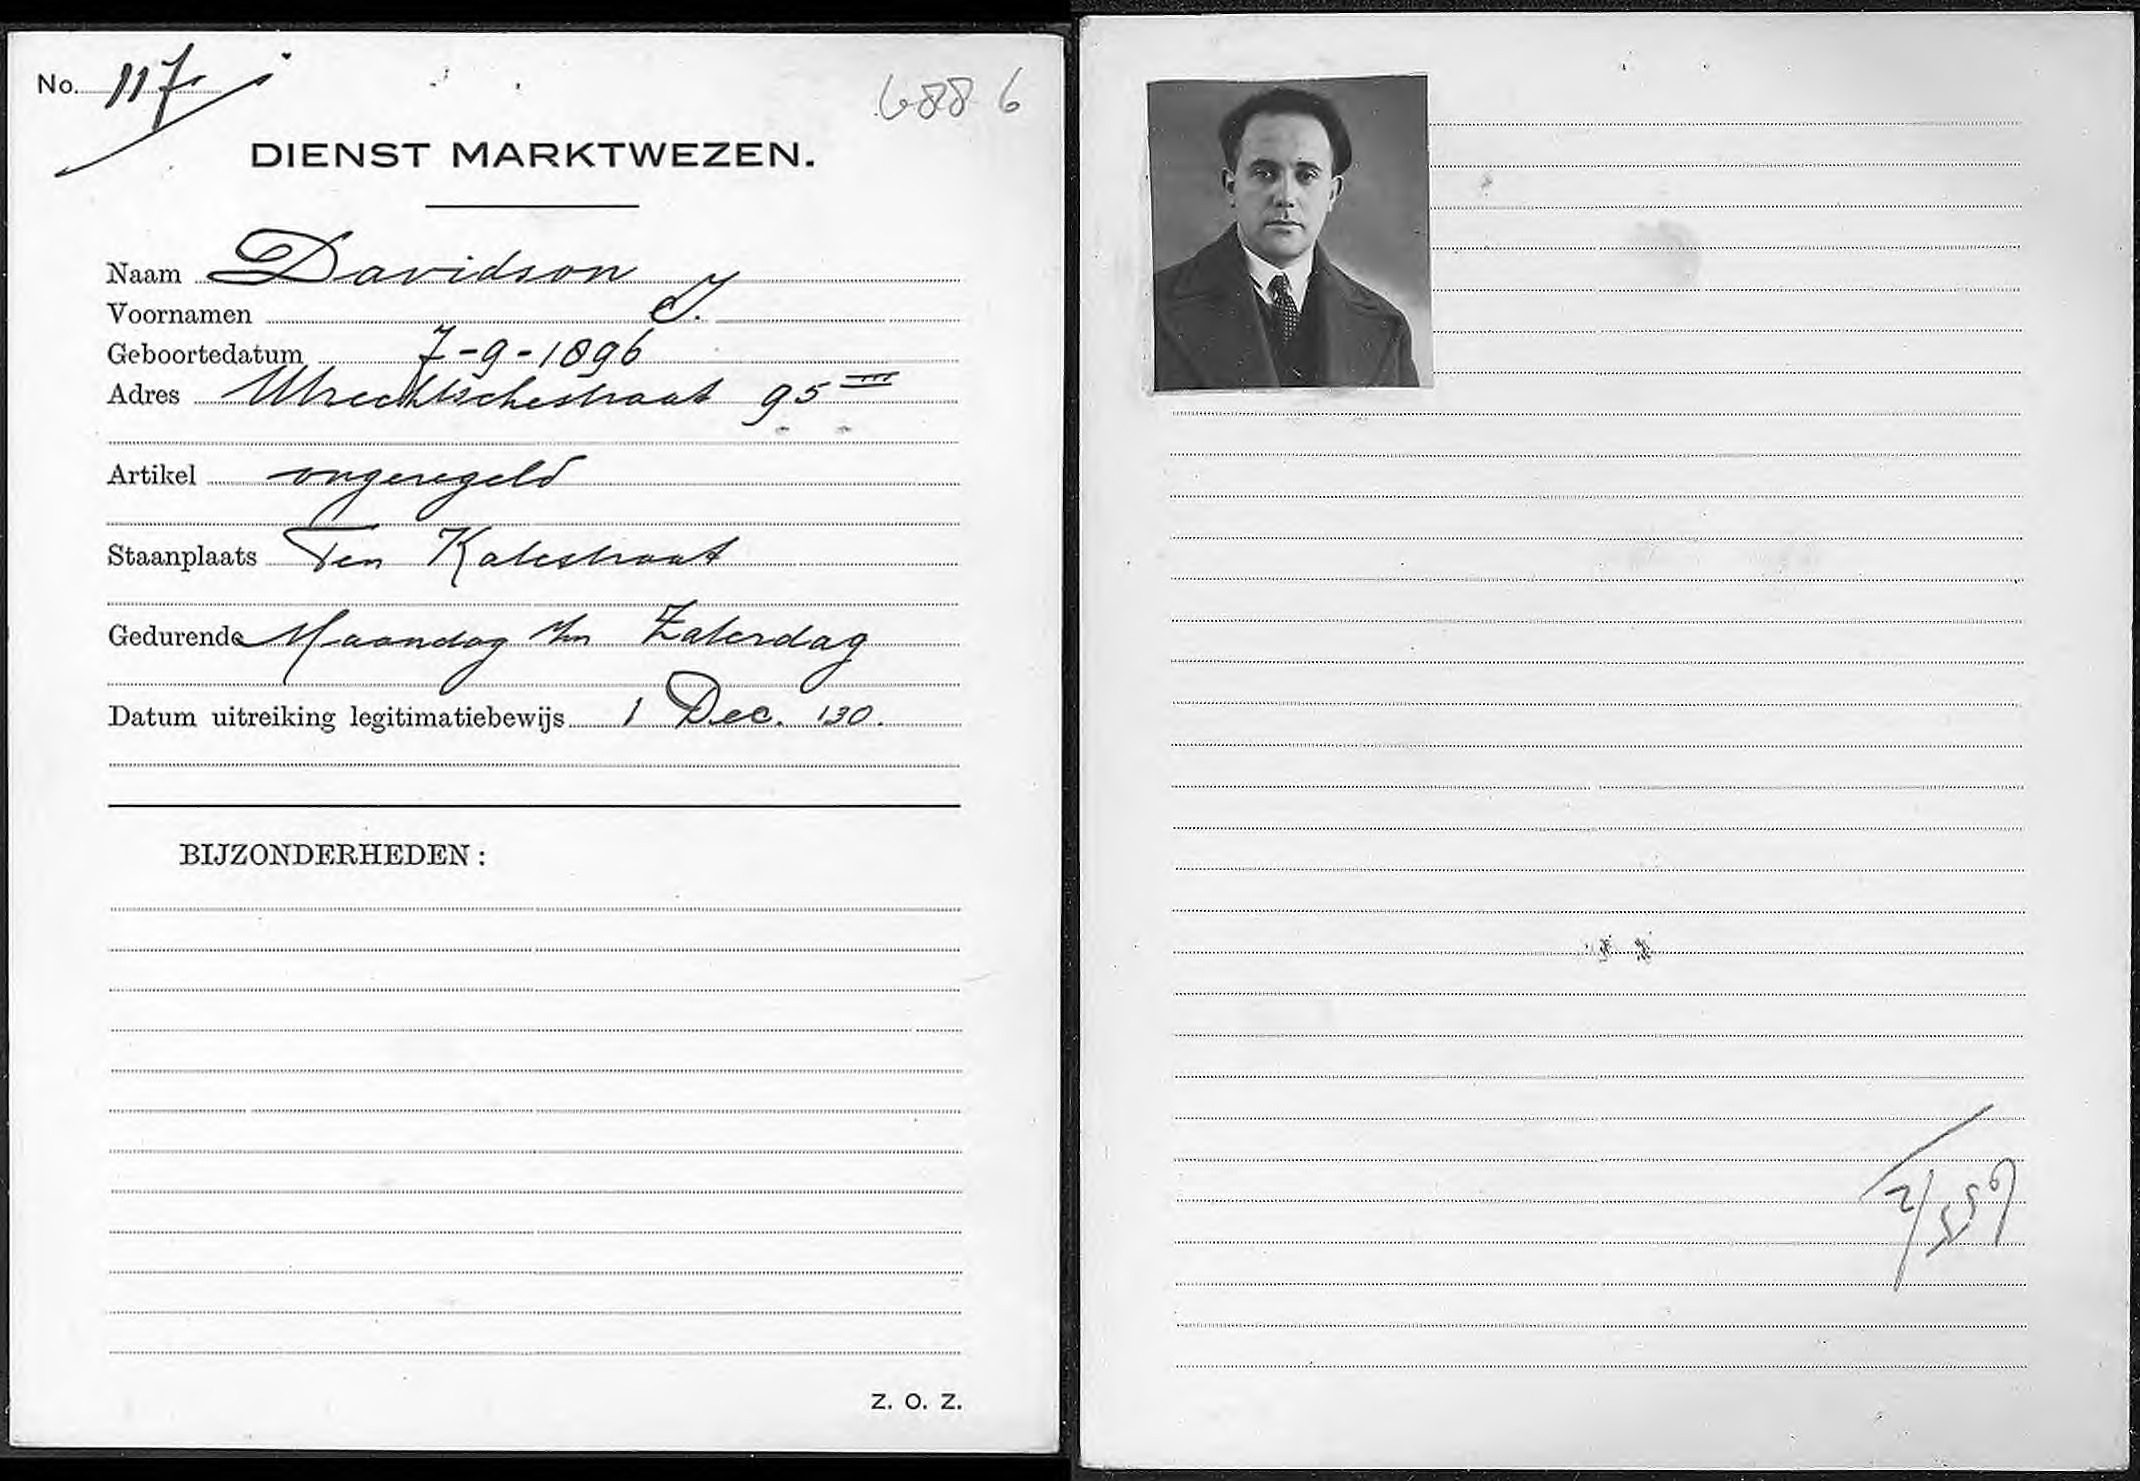 No. 117
6886
DIENST MARKTWEZEN.
Naam Davidson
Voornamen J.
Geboortedatum 7-9-1896
Adres Utrechtschestraat 95 III
Artikel ongeregeld
Staanplaats Ten Katestraat
Gedurende Maandag t/m Zaterdag
Datum uitreiking legitimatiebewijs 1 Dec. '30.
BIJZONDERHEDEN:
Z. O. Z.